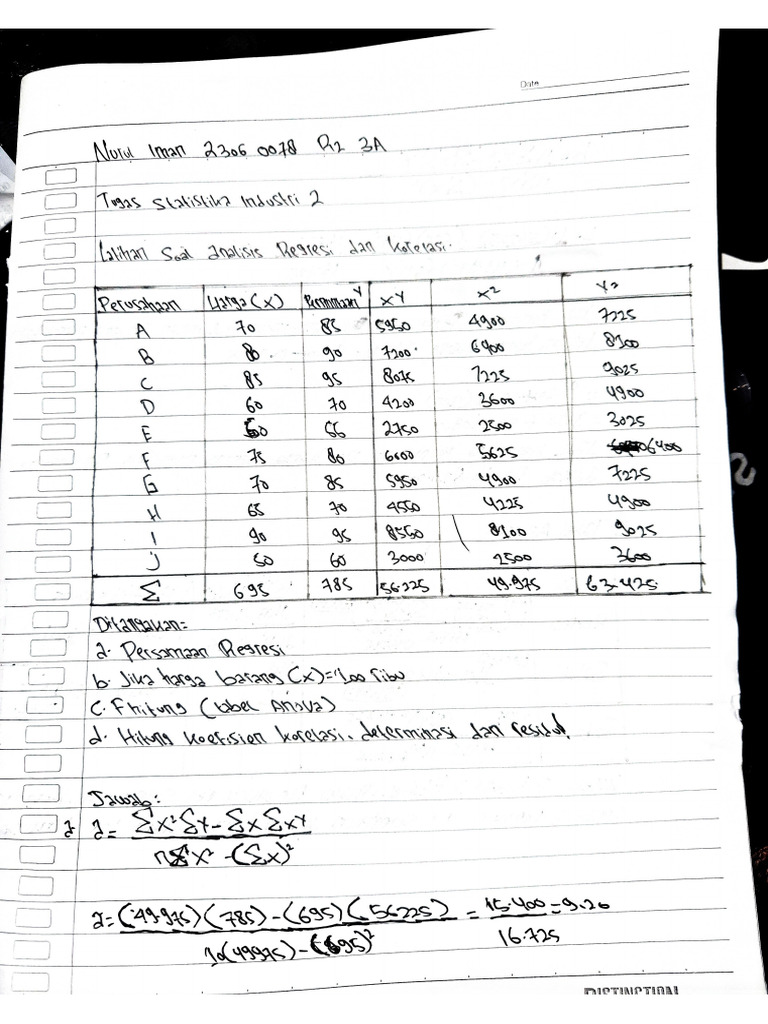 Date
Nurul Iman 2306 0078 R2 3A
Tugas Statistika Industri 2
Latihan Soal analisis Regresi dan Korelasi.
Perusahaan Harga (X) Permintaan Y XY X² Y2
A 70 85 5950 4900 7225
B 80 90 7200 6400 8100
C 85 95 8075 7225 9025
D 60 70 4200 3600 4900
E 50 55 2750 2500 3025
F 75 80 6000 5625 6400
G 70 85 5950 4900 7225
H 65 70 4550 4225 4900
I 90 95 8550 8100 9025
J 50 60 3000 2500 3600
Σ 695 785 56.225 49.975 63.425
Ditanyakan:
a. Persamaan Regresi
b. Jika harga barang (X) = 100 ribu
c. F hitung (tabel Anova)
d. Hitung koefisien korelasi, determinasi dan residu!
Jawab:
a a = ΣX² ΣY - ΣX ΣXY
nΣX² - (ΣX)²
a = (49975)(785) - (695)(56225) = 15.400 = 9.26
10(49975) - (695)² 16.725
DISTINCTION